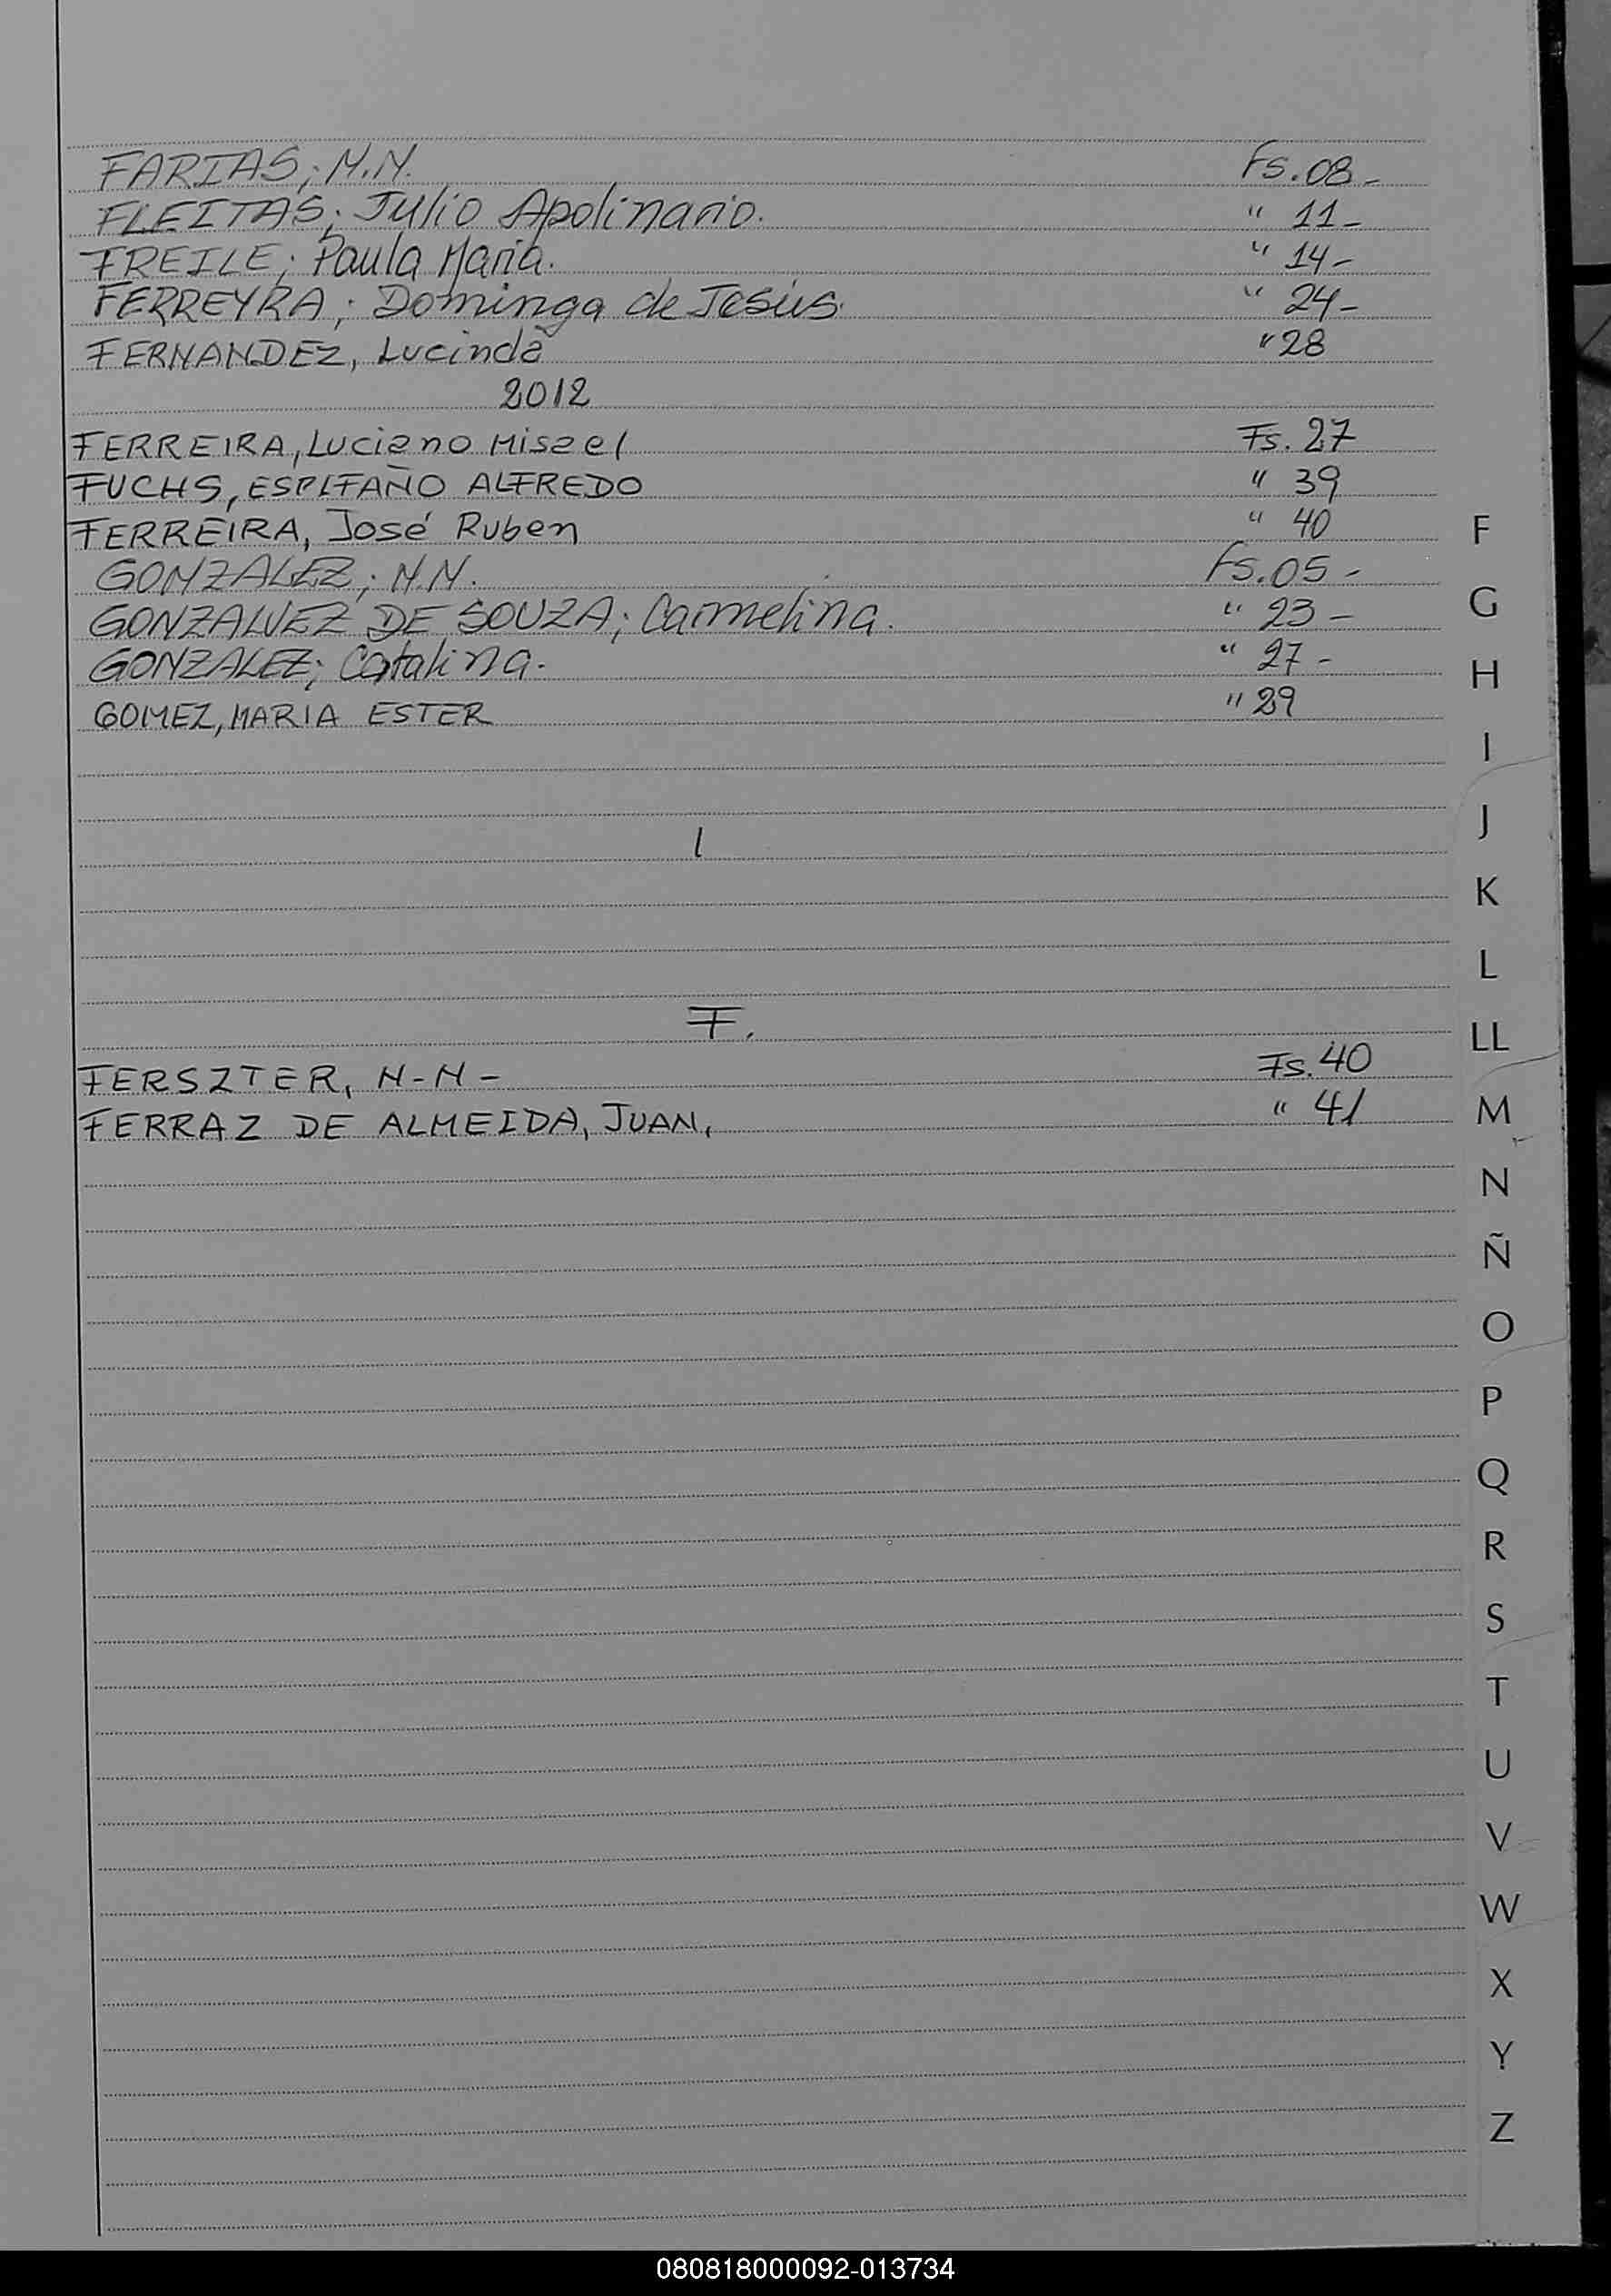 FARIAS; N.N. Fs. 08-
FLEITAS; Julio Apolinario. " 11-
FREILE; Paula María. " 14-
FERREYRA; Dominga de Jesús. " 24-
FERNANDEZ, Lucinda " 28
2012
FERREIRA, Luciano Misael Fs. 27
FUCHS, ALFREDO " 39
FERREIRA, José Ruben " 40
GONZALEZ; N.N. Fs. 05-
GONZALVEZ DE SOUZA; Carmelina. " 23-
GONZALEZ; Catalina. " 27-
GOMEZ, MARIA ESTER " 29
F.
FERSZTER, N-N- Fs. 40
FERRAZ DE ALMEIDA, JUAN, " 41
F
G
H
I
J
K
L
LL
M
N
Ñ
O
P
Q
R
S
T
U
V
W
X
Y
Z
080818000092-013734